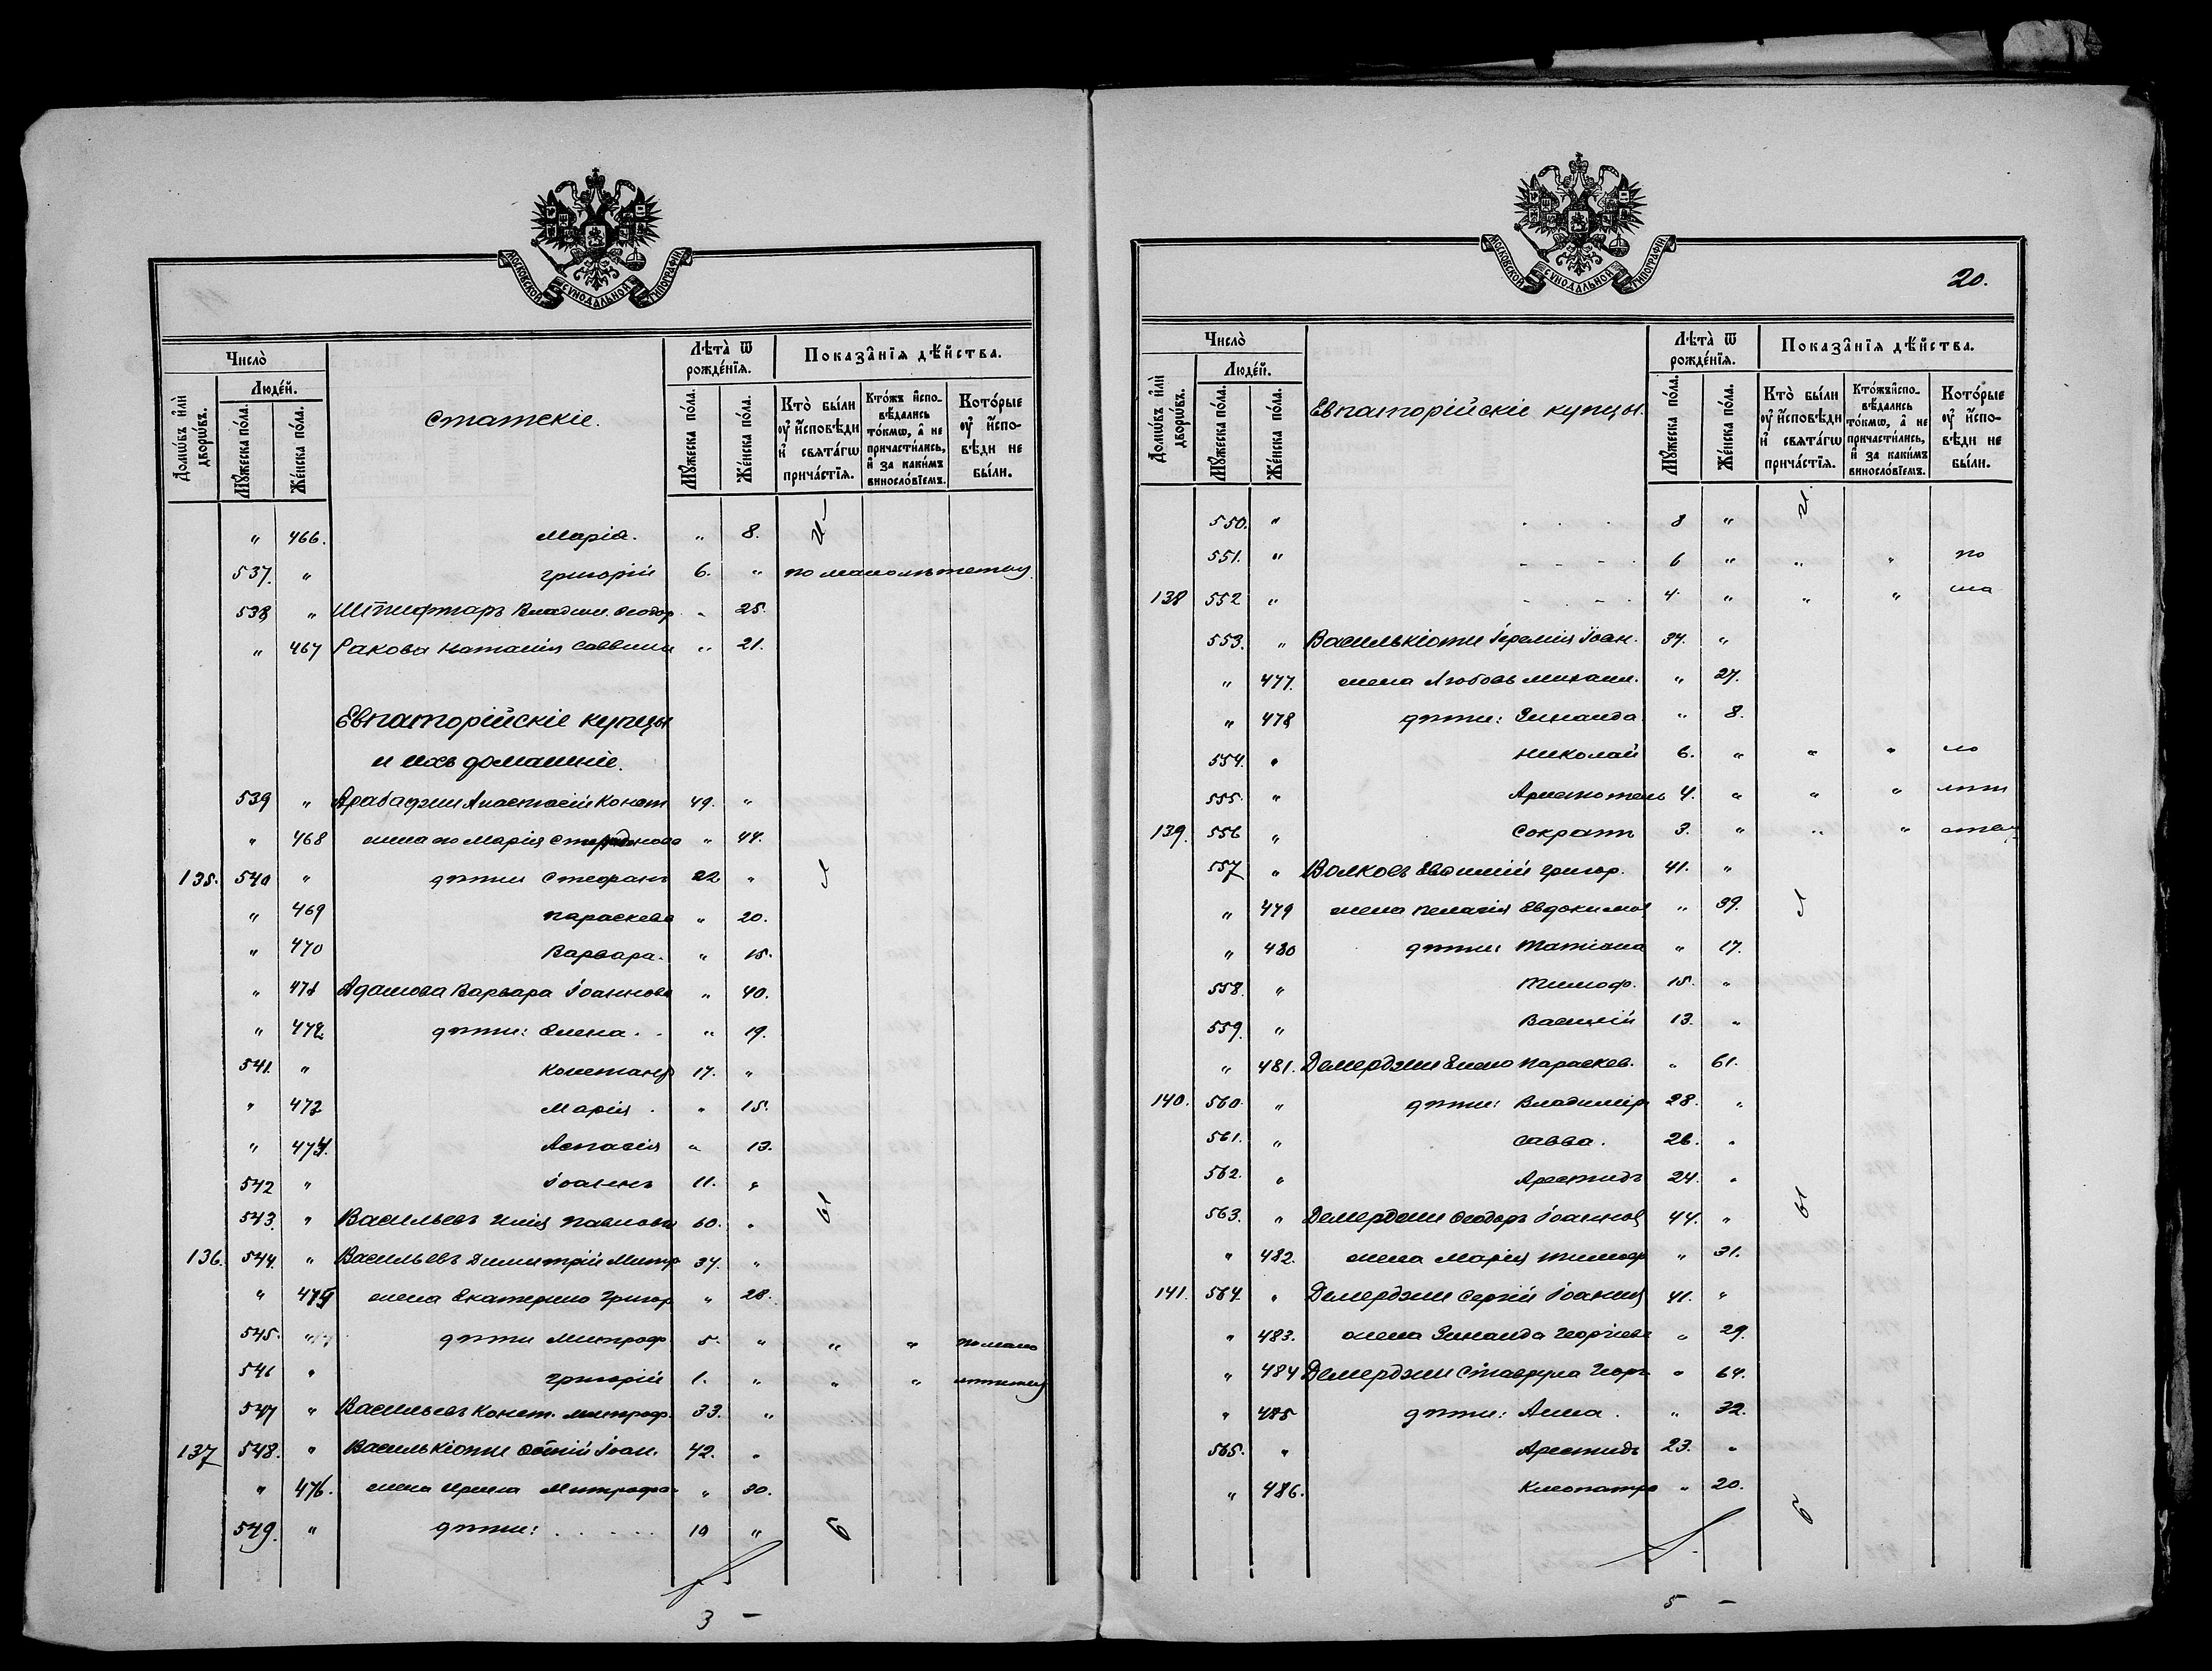 МОСКОВСКОЙ СѴНОДАЛЬНОЙ ТИПОГРАФІИ
Число̀
Лѣта̀ ѿ рожде́нїя.
Показа̂нїя дѣ́йства.
Домѡ́въ и҆лѝ дворѡ́въ.
Люде́й.
Мꙋ́жеска по́ла.
Же́нска по́ла.
Статскіе.
Мꙋ́жеска по́ла.
Же́нска по́ла.
Кто̀ бы́ли оу҆ и҆́сповѣди и҆ свята́гѡ прича́стїя.
Кто́жъ и҆спо-вѣ́дались то́кмѡ, а҆ не причасти́лись, и҆ за каки́мъ винослов́їемъ.
Кото́рые оу҆ и҆́спо-вѣди не бы́ли.
" 466. Марія. " 8.
537. " Григорій 6. " по малолѣтству
538 " Штифтаръ Владим. Ѳеодор. " 25.
" 467 Ракова Наталія Саввина " 21.
Евпаторійскіе купцы
и ихъ домашніе.
539 " Арабаджи Анастасій Конст 49. "
" 468 жена его Марія " 44.
135. 540 " дѣти Стефанъ 22 "
" 469 Параскева " 20.
" 470 Варвара. " 15.
" 471 Адамова Варвара Іоаннова " 40.
" 472 дѣти: Елена. " 19.
541. " Констант 17. "
" 473 Марія. " 15.
" 474. Аспасія " 13.
542 " Іоаннъ 11. "
543. " Васильевъ Илія Павловъ 60. "
136. 544. " Васильевъ Димитрій Митр 37. "
" 475 жена Екатерина Григор " 28.
545. " дѣти Митроф. 5. " " " по мало
546 " Григорій 1. " " " лѣтству
547 " Васильевъ Конст. Митроф. 33. "
137 548. " Василькіоти Іоан. 42. "
" 476. жена Ирина Митрофа. " 30.
549. " дѣти: . . . . . 10 "
3 –
МОСКОВСКОЙ СѴНОДАЛЬНОЙ ТИПОГРАФІИ
20.
Число̀
Лѣта̀ ѿ рожде́нїя.
Показа̂нїя дѣ́йства.
Домѡ́въ и҆лѝ дворѡ́въ.
Люде́й.
Мꙋ́жеска по́ла.
Же́нска по́ла.
Евпаторійскіе купцы.
Мꙋ́жеска по́ла.
Же́нска по́ла.
Кто̀ бы́ли оу҆ и҆́сповѣди и҆ свята́гѡ прича́стїя.
Кто́жъ и҆спо-вѣ́дались то́кмѡ, а҆ не причасти́лись, и҆ за каки́мъ винослов́їемъ.
Кото́рые оу҆ и҆́спо-вѣди не бы́ли.
550. " . . . 8 "
551. " - - - - 6 " " " по
138 552 " - . - . 4. " " " ма
553. " Василькіоти Іеремія Іоан. 37. "
" 477. жена Любовь Михаил. " 27.
" 478 дѣти: Зинаида " 8.
554. " Николай 6. " " " ло
555. " Аристотель 4. " " " лѣт
139. 556 " Сократъ 3. " " " ству
557 " Волковъ Евѳимій Григор. 41. "
" 479 жена Пелагія Евдокимов " 39.
" 480 дѣти: Татіана " 17.
558. " Тимоф. 15. "
559. " Василій 13. "
" 481. Демерджи Елена Параскев. " 61.
140. 560. " дѣти: Владимір 28. "
561. " Савва. 26. "
562. " Аристидъ 24. "
563. " Демерджи Ѳеодоръ Іоаннов 44. "
" 482. жена Марія Тимоѳ " 31.
141. 564. " Демерджи Сергій Іоаннов 41. "
" 483. жена Зинаида Георгіева " 29.
" 484 Демерджи Ставрула Георг " 64.
" 485 дѣти: Анна. " 32.
565. " Аристидъ 23. "
" 486. Клеопатра " 20.
5 –